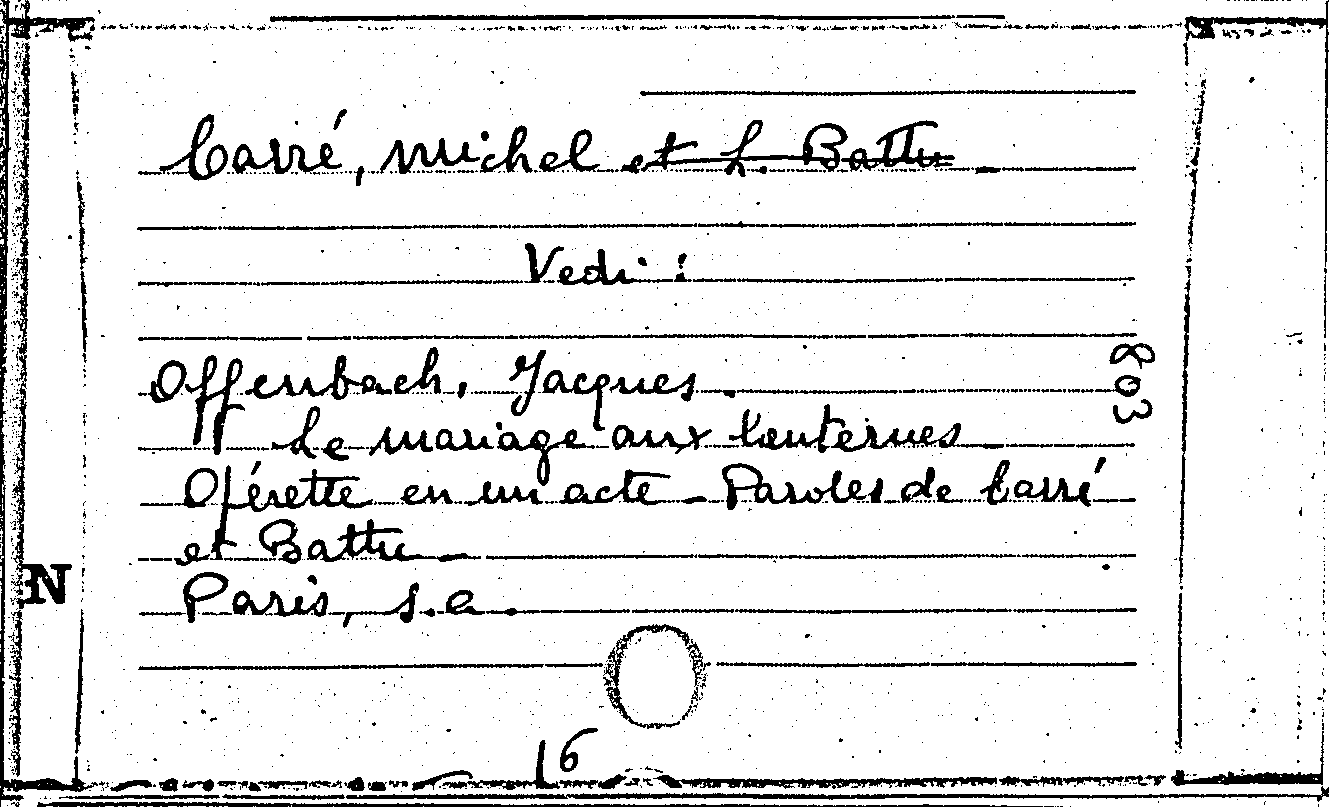 Carré, Michel et L. Battu
Vedi:
Offenbach, Jacques.
Le mariage aux lanternes
Opérette en un acte - Paroles de Carré
et Battu -
Paris, s.a.
803
N
16